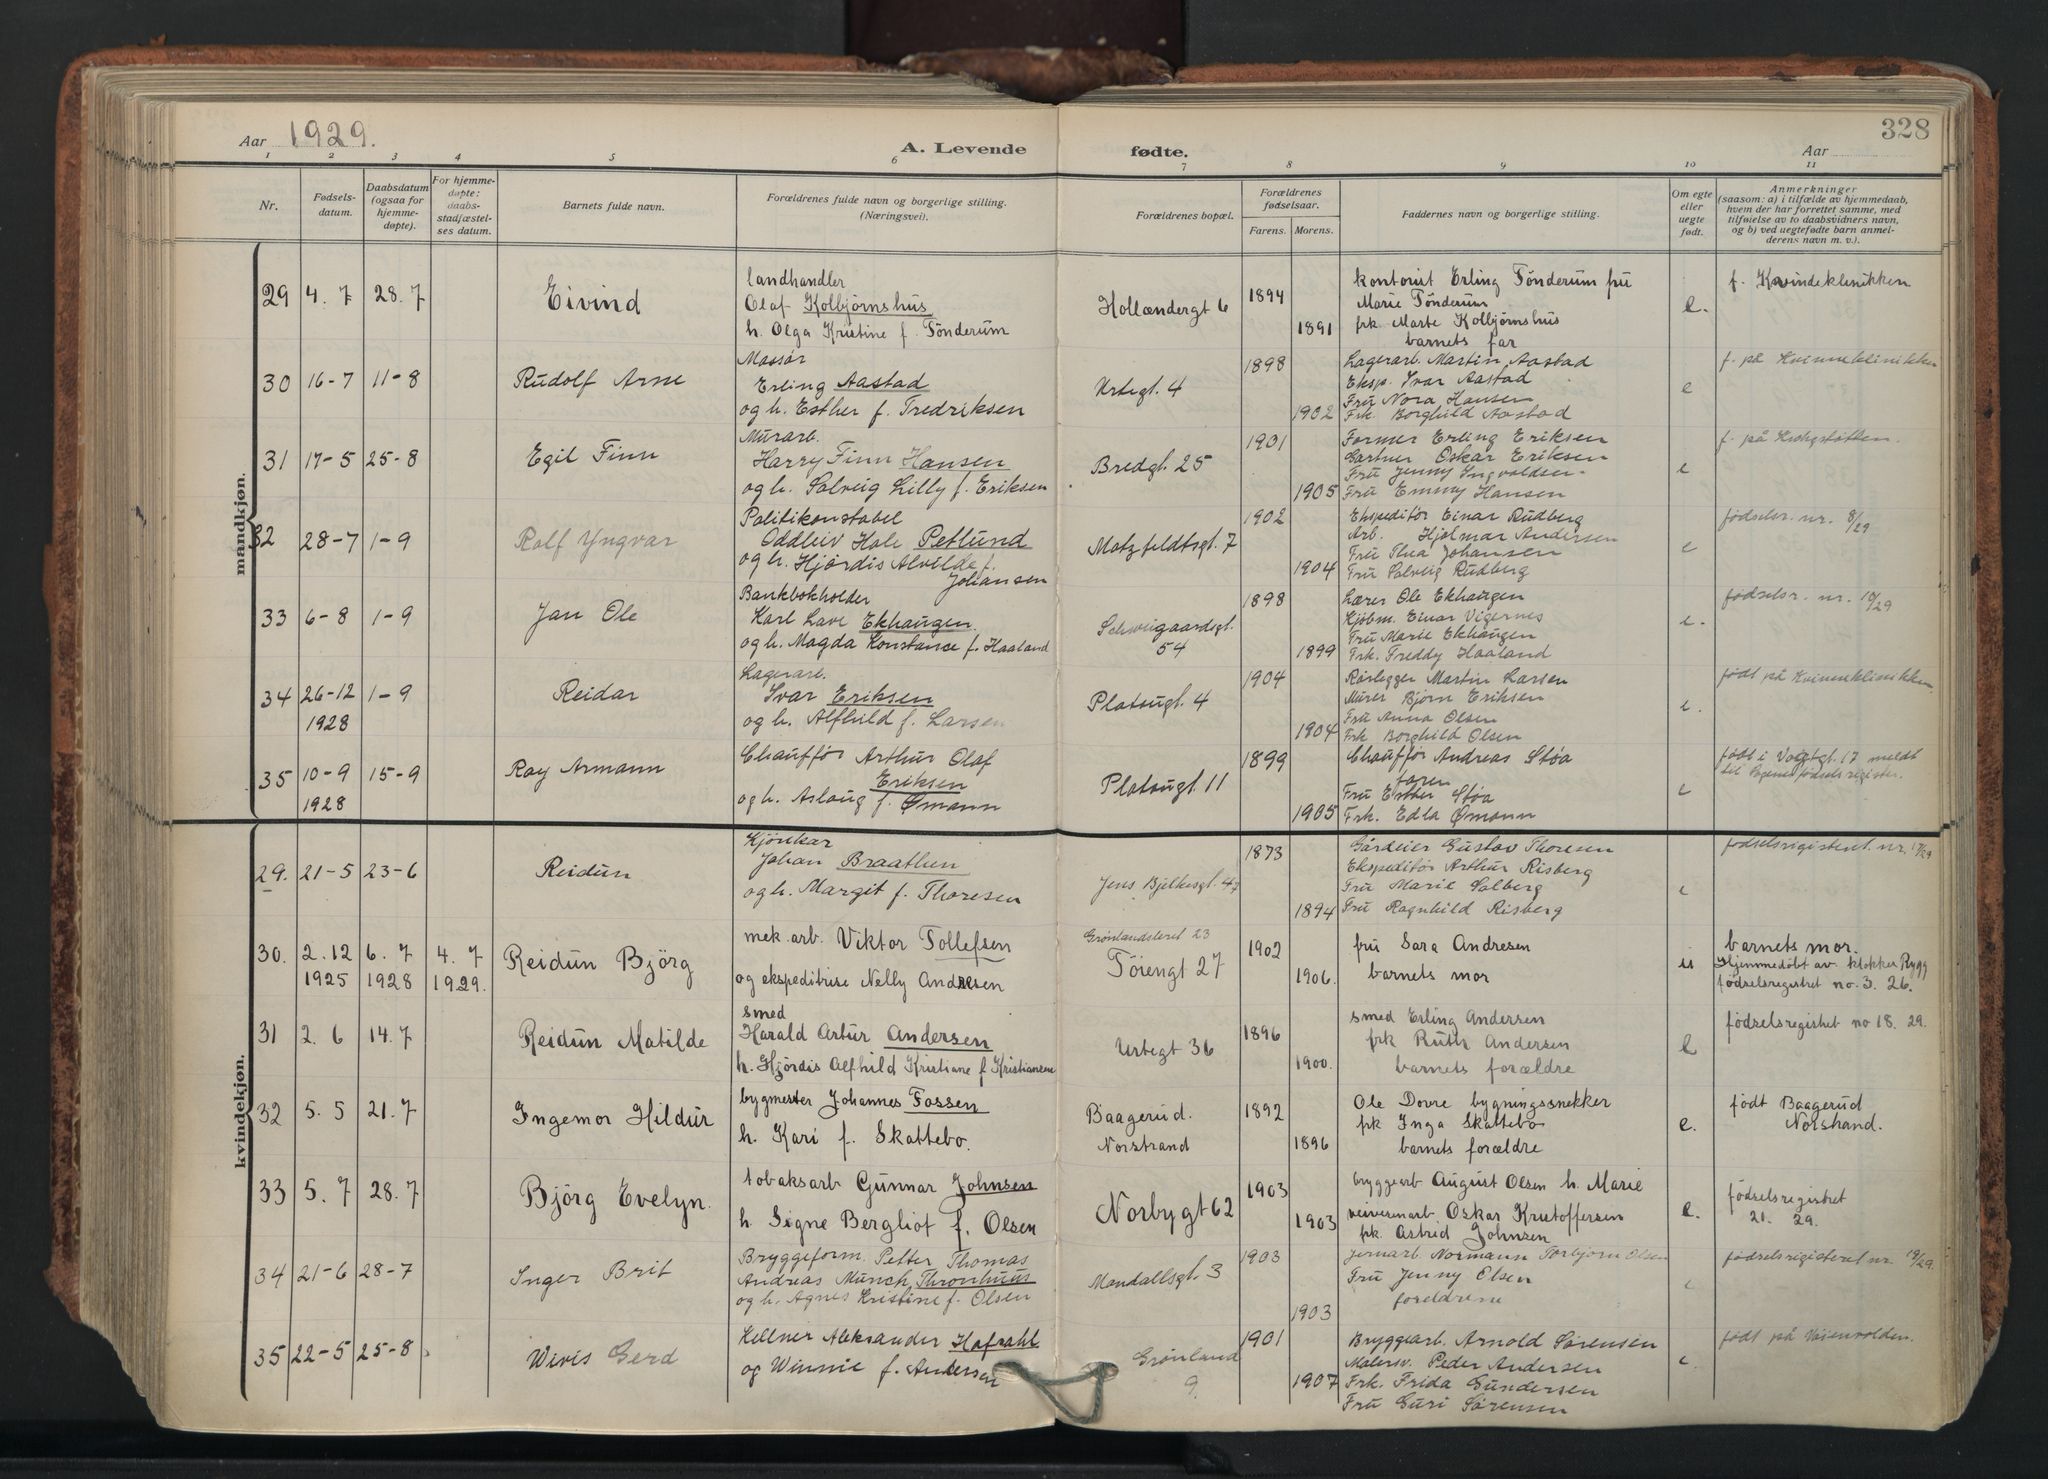 Aar 1929.
A. Levende
fødte.
328
Aar
1 2 3 4 5 6 7 8 9 10 11
Nr.
Fødsels-
datum.
Daabsdatum
(ogsaa for
hjemme-
døpte).
For hjemme-
døpte:
daabs-
stadfæstel-
ses datum.
Barnets fulde navn.
Forældrenes fulde navn og borgerlige stilling.
(Næringsvei).
Forældrenes bopæl.
Forældrenes
fødselsaar.
Farens. Morens.
Faddernes navn og borgerlige stilling.
Om egte
eller
uegte
født.
Anmerkninger
(saasom: a) i tilfælde av hjemmedaab,
hvem der har forrettet samme, med
tilføielse av to daabsvidners navn,
og b) ved uegtefødte barn anmel-
derens navn m. v.).
mandkjøn.
29 4. 7 28. 7 Eivind
landhandler
Olaf Kolbjørnshus
h. Olga Kristine f. Tönderum
Hollændergt 6
1894
1891
kontorist Erling Tönderum fru
Marie Tönderum
frk Marte Kolbjørnshus
barnets far
e.
f. Kvindeklinikken
30 16-7 11-8 Rudolf Arne
Massør
Erling Aastad
og h. Esther f. Fredriksen
Urtegt. 4
1898
1902
Lagerarb. Martin Aastad
Eksp. Ivar Aastad
Fru Nora Hansen
Frk. Borghild Aastad
e
f. på Kvinneklinikken
31 17-5 25-8 Egil Finn
Murarb.
Harry Finn Hansen
og h. Solveig Lilly f. Eriksen
Bredgt. 25
1901
1905
Former Erling Eriksen
Gartner Oskar Eriksen
Fru Jenny Ingvoldsen
Fru Emmy Hansen
e
f. på
32 28-7 1-9 Rolf Yngvar
Politikonstabel
Oddleiv Hole Petlund
og h. Hjørdis Alvilde f.
Johansen
Motzfeldtsgt. 7
1902
1904
Ekspeditør Einar Rudberg
Arb. Hjalmar Andersen
Fru Thea Johansen
Fru Solveig Rudberg
e
fødselsr. nr. 8/29
33 6-8 1-9 Jan Ole
Bankbokholder
Karl Lave Ekhaugen
og h. Magda Konstance f. Haaland
Schweigaardsgt.
54
1898
1899
Lærer Ole Ekhaugen
Kjøbm. Einar Vigernes
Fru Marie Ekhaugen
Frk. Freddy Haaland
e.
fødselsr. nr. 10/29
34 26-12 1-9 Reidar
1928
Lagerarb.
Ivar Eriksen
og h. Alfhild f. Larsen
Platougt. 4
1904
1904
Rørlegger Martin Larsen
Murer Bjørn Eriksen
Fru Anna Olsen
Frk Borghild Olsen
e.
født på Kvinneklinikken
35 10-9 15-9 Roy Armann
1928
Chauffør Arthur Olaf
Eriksen
og h. Aslaug f. Ømann
Platougt 11
1899
1905
Chauffør Andreas Støa
faren
Fru Esther Støa
Frk. Edla Ømann
e
født i Vogtgt. 17 meldt
til fødselsregister.
kvindekjøn.
29. 21-5 23-6 Reidun
Kjørekar
Johan Braathen
og h. Margit f. Thoresen
Jens Bjelkesgt. 47
1873
1894
Gårdeier Gustav Thoresen
Ekspeditør Arthur Risberg
Fru Marie Solberg
Fru Ragnhild Risberg
e
fødselsregisteret nr. 17/29
30. 2. 12 6. 7 4. 7 Reidun Björg
1925 1928 1929.
mek. arb. Viktor Tollefsen
og ekspeditrise Nelly Andresen
Grønlandsleret 23
Töiengt 27
1902
1906.
fru Sara Andresen
barnets mor
u
barnets mor.
Hjemmedöbt av klokker Rygg
fødselsregistret no. 3. 26.
31 2. 6 14. 7 Reidun Matilde
smed
Harald Artur Andersen
h. Hjördis Alfhild Kristiane f Kristiansen
Urtegt 36
1896
1900.
smed Erling Andersen
frk Ruth Andersen
barnets forældre
e
fødselsregistret no 18. 29.
32 5. 5 21. 7 Ingemor Hildur
bygmester Johannes Fossen
h. Kari f. Skattebo.
Baagerud.
Norstrand
1892
1896
Ole Dovre bygningssnekker
frk Inga Skattebo
barnets forældre
e.
født Baagerud
Norstrand.
33 5. 7 28. 7 Björg Evelyn.
tobaksarb Gunnar Johnsen
h. Signe Bergliot f. Olsen
Norbygt 62
1903
1903
bryggearb August Olsen h. Marie
veivesenarb Oskar Kristoffersen
frk. Astrid Johnsen
e.
fødselsregistret
21. 29.
34 21-6 28-7 Inger Brit
Bryggeform. Petter Thomas
Andreas Munch Thronhuus
og h. Agnes Kristine f. Olsen
Mandallsgt. 3
1903
1903
Jernarb. Normann Torbjørn Olsen
Fru Jenny Olsen
foreldrene
e
fødselsregisteret nr. 19/29.
35 22-5 25-8 Wivis Gerd
Kellner Aleksander Hafsahl
og Winnie f. Andersen
Grønland
9.
1901
1907
Bryggearb. Arnold Sørensen
Malersv. Peder Andersen
Frk. Frida Gundersen
Fru Guri Sørensen
e.
født på Veienvolden.